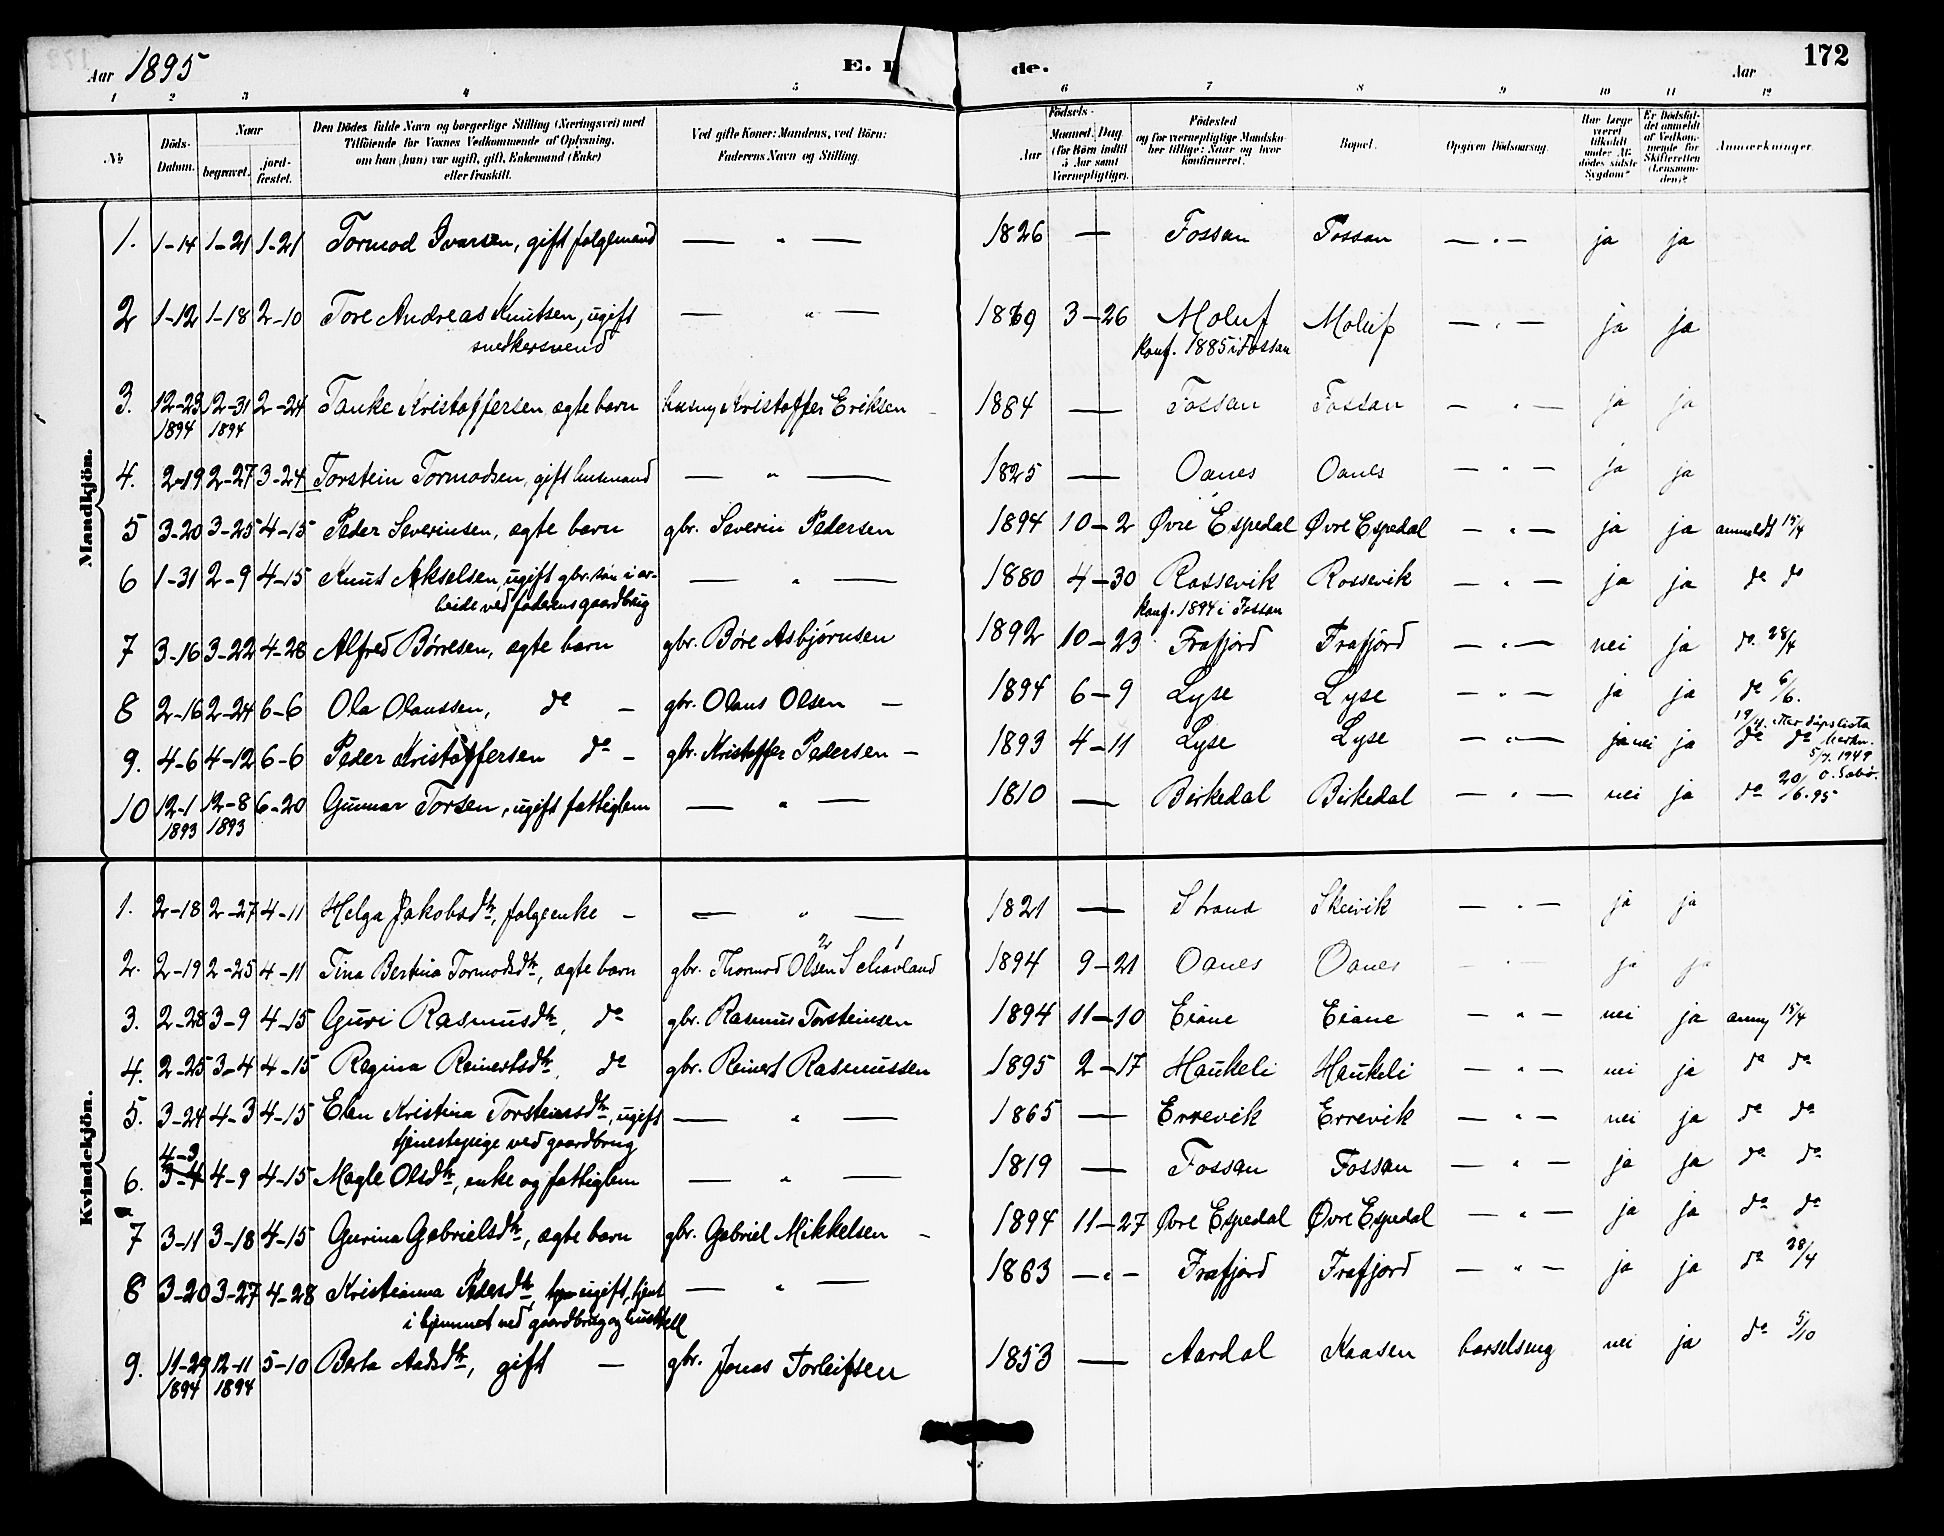 Aar 1895 E. D de. Aar 172
1 2 3 4 5 6 7 8 9 10 11 12
No Döds-Datum. Naar begravet. jord-fæstet. Den Dödes fulde Navn og borgerlige Stilling (Næringsvei) med Tilföiende for Voxnes Vedkommende af Oplysning, om han (hun) var ugift, gift, Enkemand (Enke) eller fraskilt. Ved gifte Koner: Mandens, ved Börn: Faderens Navn og Stilling. Aar Födsels- Maaned. Dag (for Börn indtil 5 Aar samt Værnepligtige). Födested og for værnepligtige Mandskaber tillige: Naar og hvor Konfirmeret. Bopæl. Opgiven Dödsaarsag. Har Læge været tilkaldt under Afdödes sidste Sygdom? Er Dödsfaldet anmeldt af Vedkommende for Skifteretten (Lensmanden)? Anmærkninger
Mandkjön.
1. 1-14 1-21 1-21 Tormod Ivarsen, gift følgemand — " — 1826 — Fossan Fossan — " — ja ja
2 1-12 1-18 2-10 Tore Andreas Knutsen, ugift — " — 1869 3-26 Moluf Moluf — " — ja ja
snedkersvend Konf. 1885 i Fossan
3. 12-23 12-31 2-24 Tanke Kristoffersen, ægte barn husmd Kristoffer Eriksen 1884 — Fossan Fossan — " — ja ja
1894 1894
4. 2-19 2-27 3-24 Torstein Tormodsen, gift husmand — " — 1825 — Oanes Oanes — " — ja ja
5 3-20 3-25 4-15 Peder Severinsen, ægte barn gbr. Severin Pedersen 1894 10-2 Øvre Espedal Øvre Espedal — " — ja ja anmeldt 15/4
6 1-31 2-9 4-15 Knut Akselsen, ugift gbr. søn i ar- — " — 1880 4-30 Rossevik Rossevik — " — ja ja do do
beide ved faderens gaardbrug Konf. 1894 i Fossan
7 3-16 3-22 4-28 Alfred Børresen, ægte barn gbr. Børe Asbjørnsen 1892 10-23 Frafjord Frafjord — " — nei ja do 28/4
8 2-16 2-24 6-6 Ola Olaussen, do — gbr. Olaus Olsen — 1894 6-9 Lyse Lyse — " — ja ja do 6/6.
9. 4-6 4-12 6-6 Peder Kristoffersen do — gbr. Kristoffer Pedersen — 1893 4-11 Lyse Lyse — " — ja nei ja do do
19/4. etter dåpslista
5/7. 1949
10 12-1 12-8 6-20 Gunnar Torsen, ugift fattiglem — " — 1810 — Birkedal Birkedal — " — nei ja do 20/6.95
1893 1893
Kvindekjön.
1. 2-18 2-27 4-11 Helga Jakobsdtr, følgeenke — — " — 1821 — Strand Skeivik — " — ja ja
2. 2-19 2-25 4-11 Tina Bertina Tormodsdtr, ægte barn gbr. Thormod Olsen Schavland 1894 9-21 Oanes Oanes — " — ja ja
3. 2-28 3-9 4-15 Guri Rasmusdtr, do gbr. Rasmus Torsteinsen 1894 11-10 Eiane Eiane — " — nei ja anm 15/4
4. 2-25 3-4 4-15 Regina Reinertsdtr, do gbr. Reinert Rasmussen 1895 2-17 Haukeli Haukeli — " — nei ja do do
5. 3-24 4-3 4-15 Elen Kristina Torsteinsdtr, ugift — " — 1865 — Errevik Errevik — " — nei ja do do
tjenestepige ved gaardbrug
4-3
6. 3-4 4-9 4-15 Magle Olsdtr, enke og fattiglem — " — 1819 — Fossan Fossan — " — ja ja do do
7 3-11 3-18 4-15 Gurina Gabrielsdtr, ægte barn gbr. Gabriel Mikkelsen — 1894 11-27 Øvre Espedal Øvre Espedal — " — ja ja do do
8 3-20 3-27 4-28 Kristianna Pedersdtr, ugift, tjent — " — 1863 — " — Frafjord Frafjord — " — ja ja do 28/4
i hjemmet ved gaardbrug og husstell
9. 11-29 12-11 5-10 Berta Aadsdtr, gift — gbr. Jonas Torleifsen 1853 — Aardal Kaasen barselseng nei ja do 5/10
1894 1894